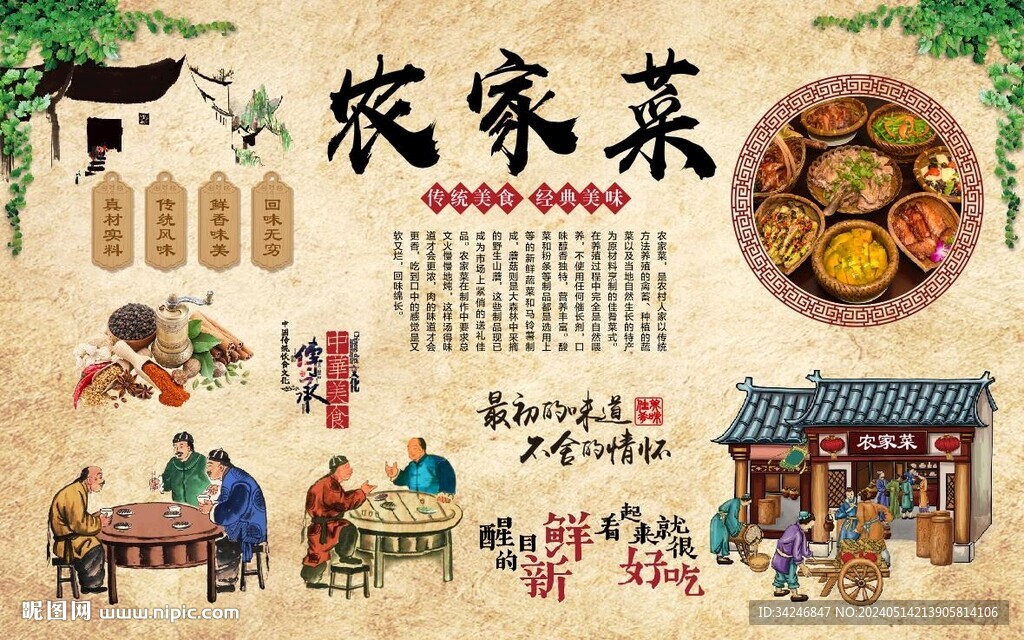 农家菜
传统美食 经典美味
真材实料
传统风味
鲜香味美
回味无穷
农家菜，是农村人家以传统
方法养殖的禽畜、种植的蔬
菜以及当地自然生长的特产
为原材料烹制的佳肴菜式。
在养殖过程中完全是自然喂
养，不使用任何催长剂，口
味醇香独特，营养丰富。酸
菜和粉条等制品都是选用上
等的新鲜蔬菜和马铃薯制
成，蘑菇则是大森林中采摘
的野生山蘑，这些制品现已
成为市场上紧俏的送礼佳
品。农家菜在制作中要求总
文火慢慢地炖，这样汤得味
道才会更浓，肉的味道才会
更香，吃到口中的感觉是又
软又烂，回味绵长。
中国传统饮食文化
傳承
中華美食
最初的味道
不舍的情怀
农家菜
醒目的新鲜
看起来就很好吃
昵图网 www.nipic.com
ID:34246847 NO:20240514213905814106